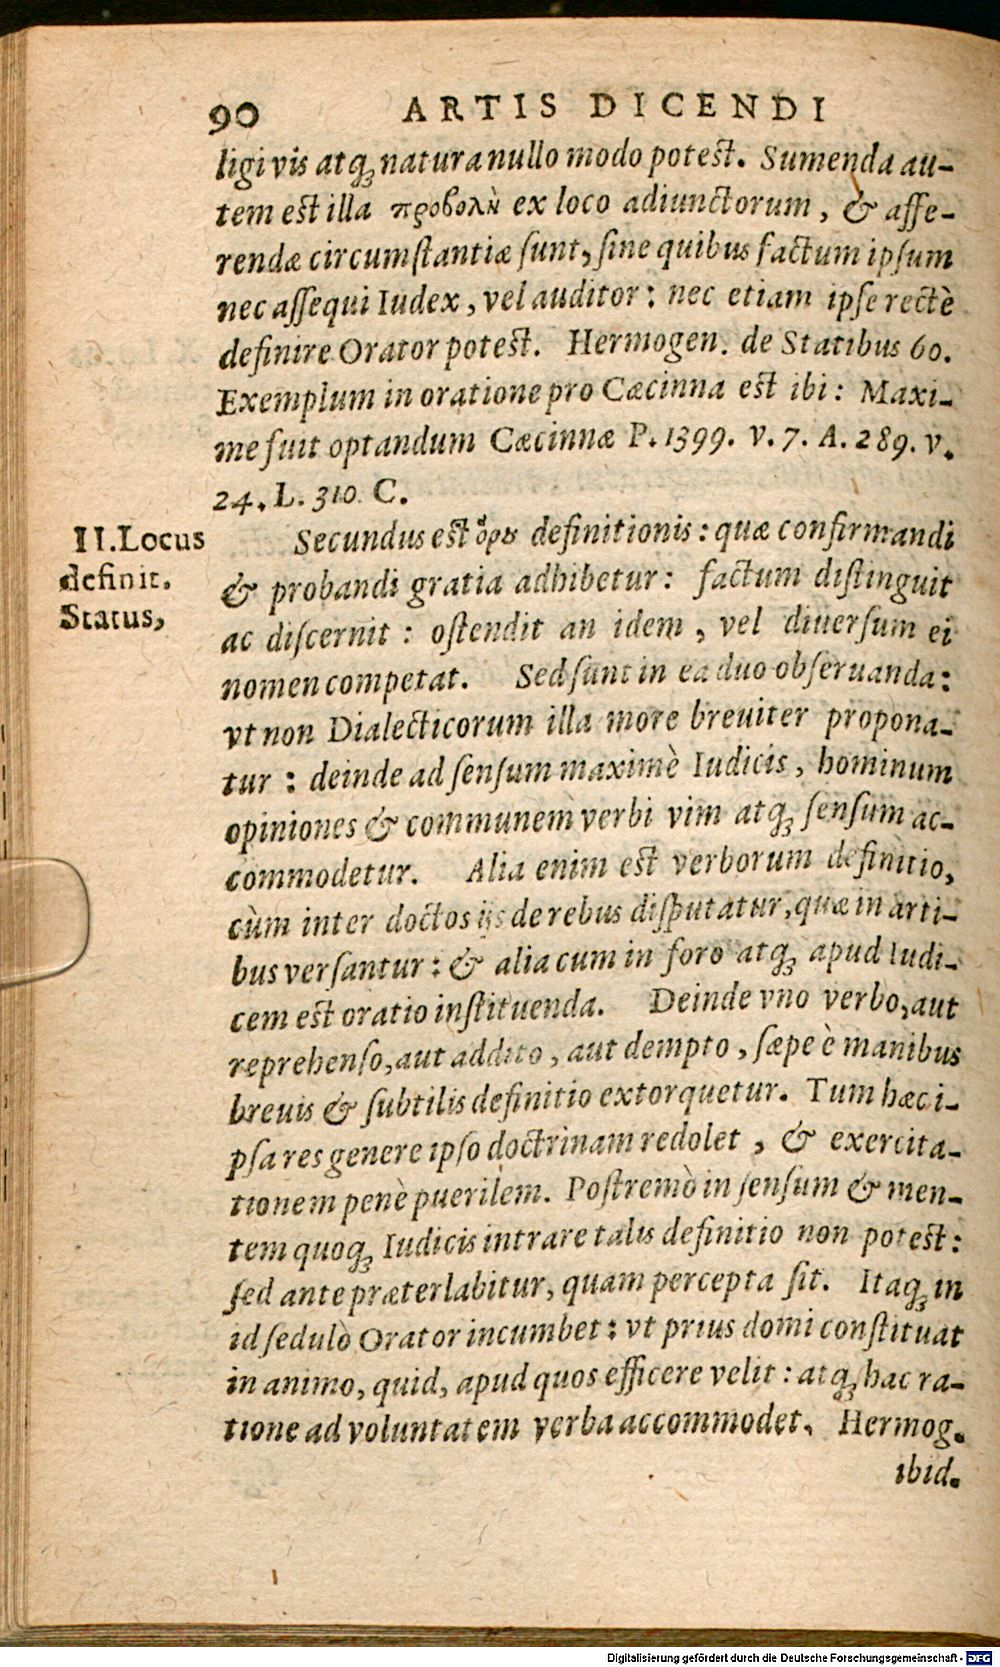 90 ARTIS DICENDI
ligi vis atq; natura nullo modo potest. Sumenda au-
tem est illa προβολὴ ex loco adiunctorum, & affe-
rendæ circumstantiæ sunt, sine quibus factum ipsum
nec assequi Iudex, vel auditor: nec etiam ipse rectè
definire Orator potest. Hermogen. de Statibus 60.
Exemplum in oratione pro Cæcinna est ibi: Maxi-
me fuit optandum Cæcinnæ P. 1399. v. 7. A. 289. v.
24. L. 310. C.
II. Locus
definit.
Status,
Secundus est ὅρου definitionis: quæ confirmandi
& probandi gratia adhibetur: factum distinguit
ac discernit: ostendit an idem, vel diuersum ei
nomen competat. Sed sunt in ea duo obseruanda:
vt non Dialecticorum illa more breuiter propona-
tur: deinde ad sensum maximè Iudicis, hominum
opiniones & communem verbi vim atq; sensum ac-
commodetur. Alia enim est verborum definitio,
cùm inter doctos ijs de rebus disputatur, quæ in arti-
bus versantur: & alia cum in foro atq; apud Iudi-
cem est oratio instituenda. Deinde vno verbo, aut
reprehenso, aut addito, aut dempto, sæpe è manibus
breuis & subtilis definitio extorquetur. Tum hæc i-
psa res genere ipso doctrinam redolet, & exercita-
tionem penè puerilem. Postremò in sensum & men-
tem quoq; Iudicis intrare talis definitio non potest:
sed ante præterlabitur, quam percepta sit. Itaq; in
id sedulò Orator incumbet: vt prius domi constituat
in animo, quid, apud quos efficere velit: atq; hac ra-
tione ad voluntatem verba accommodet. Hermog.
ibid.
Digitalisierung gefördert durch die Deutsche Forschungsgemeinschaft - DFG